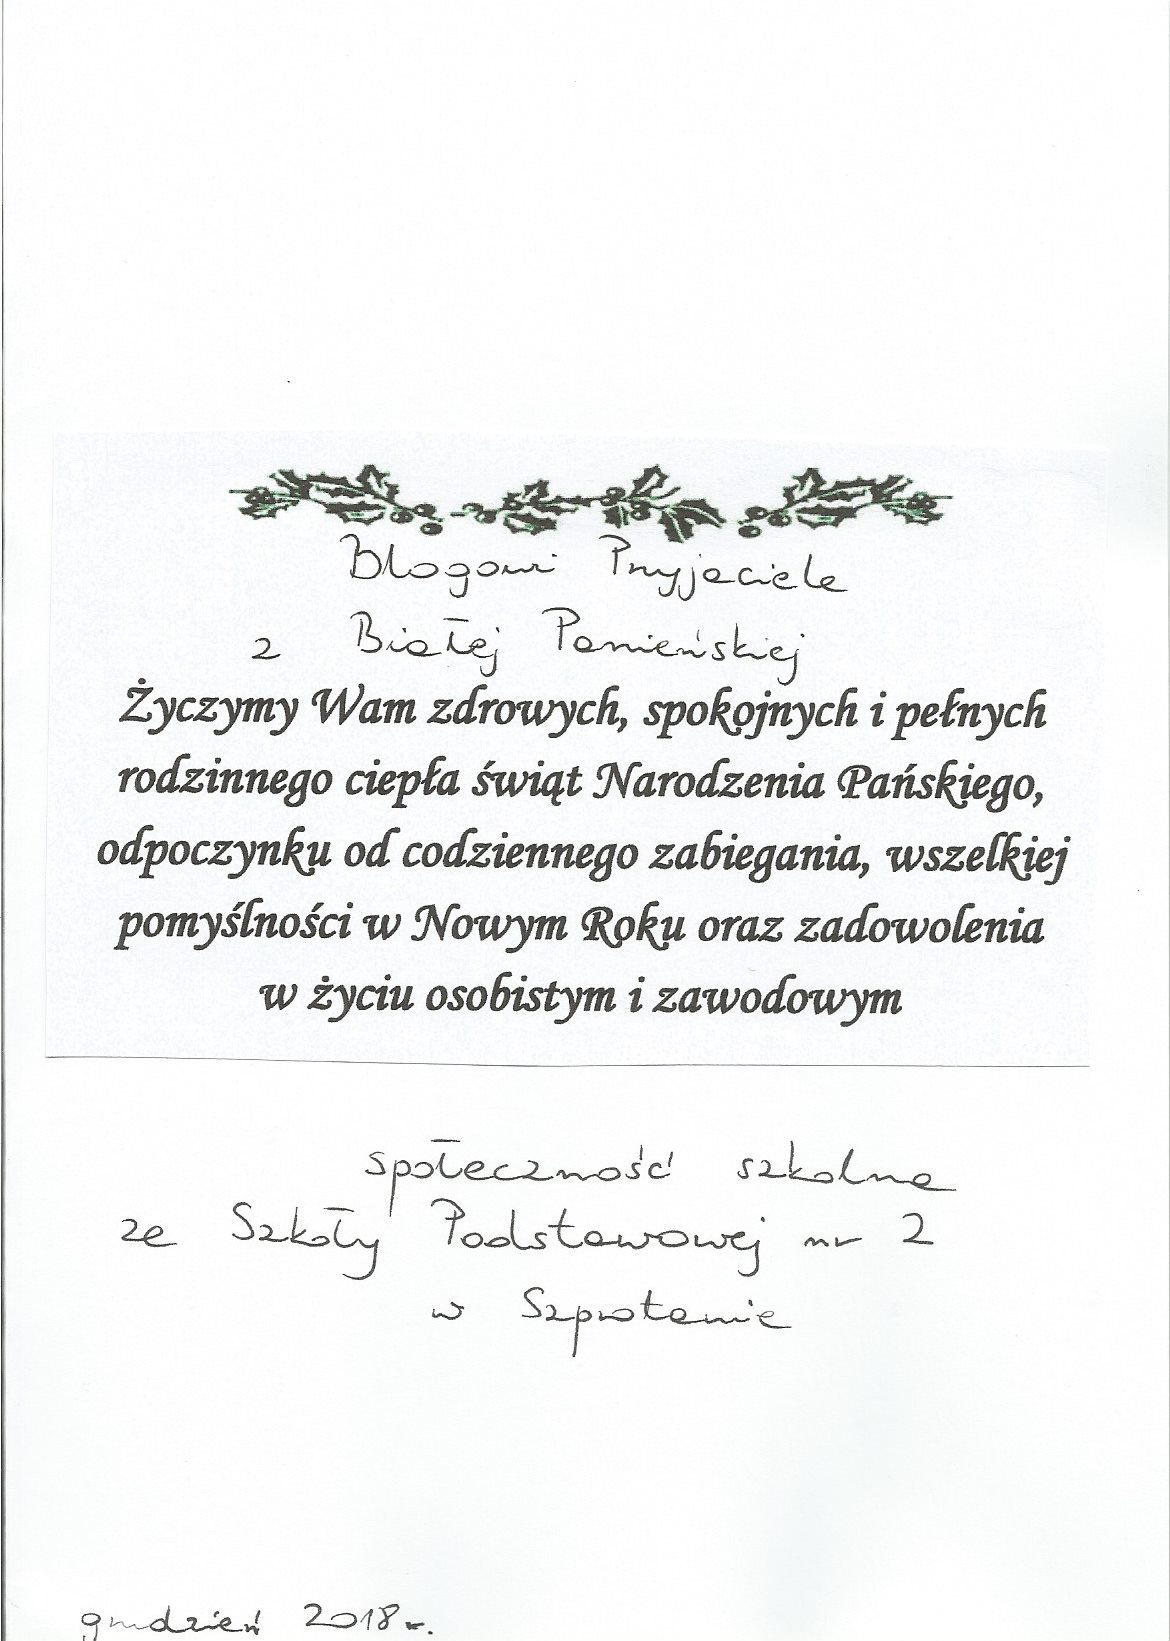 Blogowi Przyjaciele
z Białej Panieńskiej
Życzymy Wam zdrowych, spokojnych i pełnych
rodzinnego ciepła świąt Narodzenia Pańskiego,
odpoczynku od codziennego zabiegania, wszelkiej
pomyślności w Nowym Roku oraz zadowolenia
w życiu osobistym i zawodowym
społeczność szkolna
ze Szkoły Podstawowej nr 2
w Szprotawie
grudzień 2018r.